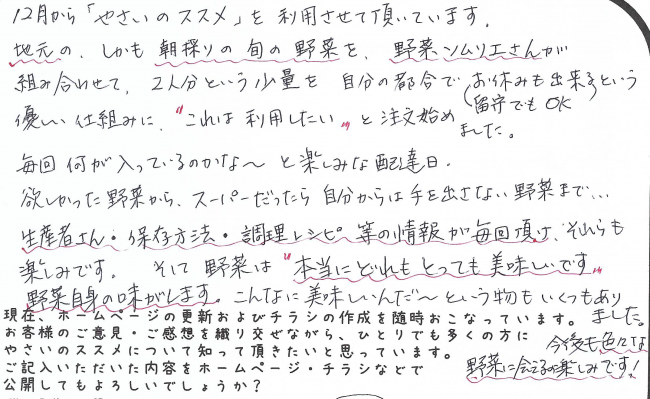 12月から「やさいのススメ」を利用させて頂いています。
地元の、しかも朝採りの旬の野菜を、野菜ソムリエさんが
組み合わせて、2人分という少量を自分の都合でお休みも出来るという
(留守でもOK)
優しい仕組みに、"これは利用したい"と注文始め
ました。
毎回何が入っているのかな〜と楽しみな配達日。
欲しかった野菜から、スーパーだったら自分からは手を出さない野菜まで…
生産者さん・保存方法・調理レシピ等の情報が毎回頂け、それらも
楽しみです。そして野菜は"本当にどれもとっても美味しいです"
野菜自身の味がします。こんなに美味しいんだ〜という物もいくつもあり
ました。
今後も色々な
野菜に会えるの楽しみです!
現在、ホームページの更新およびチラシの作成を随時おこなっています。
お客様のご意見・ご感想を織り交ぜながら、ひとりでも多くの方に
やさいのススメについて知って頂きたいと思っています。
ご記入いただいた内容をホームページ・チラシなどで
公開してもよろしいでしょうか?